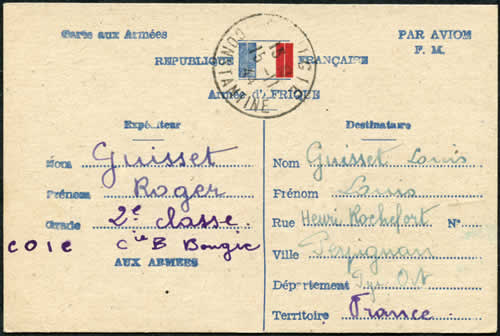 Carte aux Armées
PAR AVION
F. M.
REPUBLIQUE FRANÇAISE
Armée d'AFRIQUE
CONSTANTINE
Expéditeur
Nom Guisset
Prénom Roger
Grade 2e classe
Cie B
AUX ARMEES
Destinataire
Nom Guisset Louis
Prénom Louis
Rue Henri Rochefort N°
Ville Perpignan
Département Pyr. Ort
Territoire France